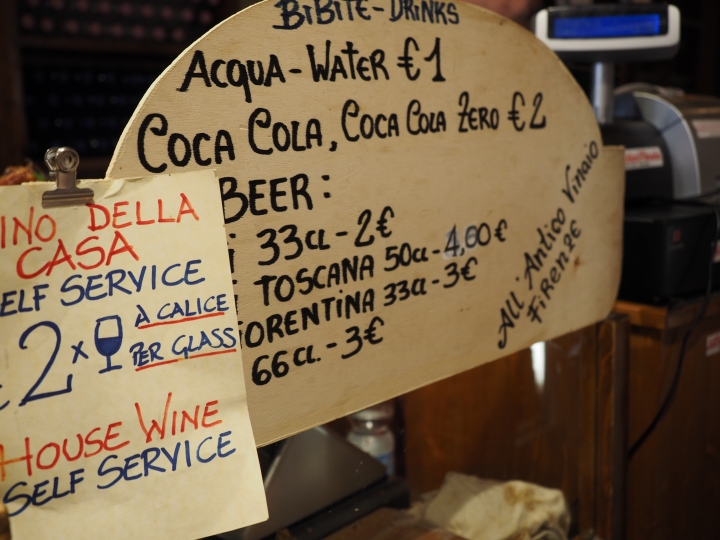 BiBiTE-DRiNKS
ACQUA-WATER €1
COCA COLA, COCA COLA ZERO €2
BEER:
33CL-2€
TOSCANA 50CL-4,00€
33CL-3€
66CL.-3€
All'Antico Vinaio
FiRENZE
DELLA
CASA
SERVICE
€2 x
A CALICE
PER GLASS
HOUSE WINE
SELF SERVICE